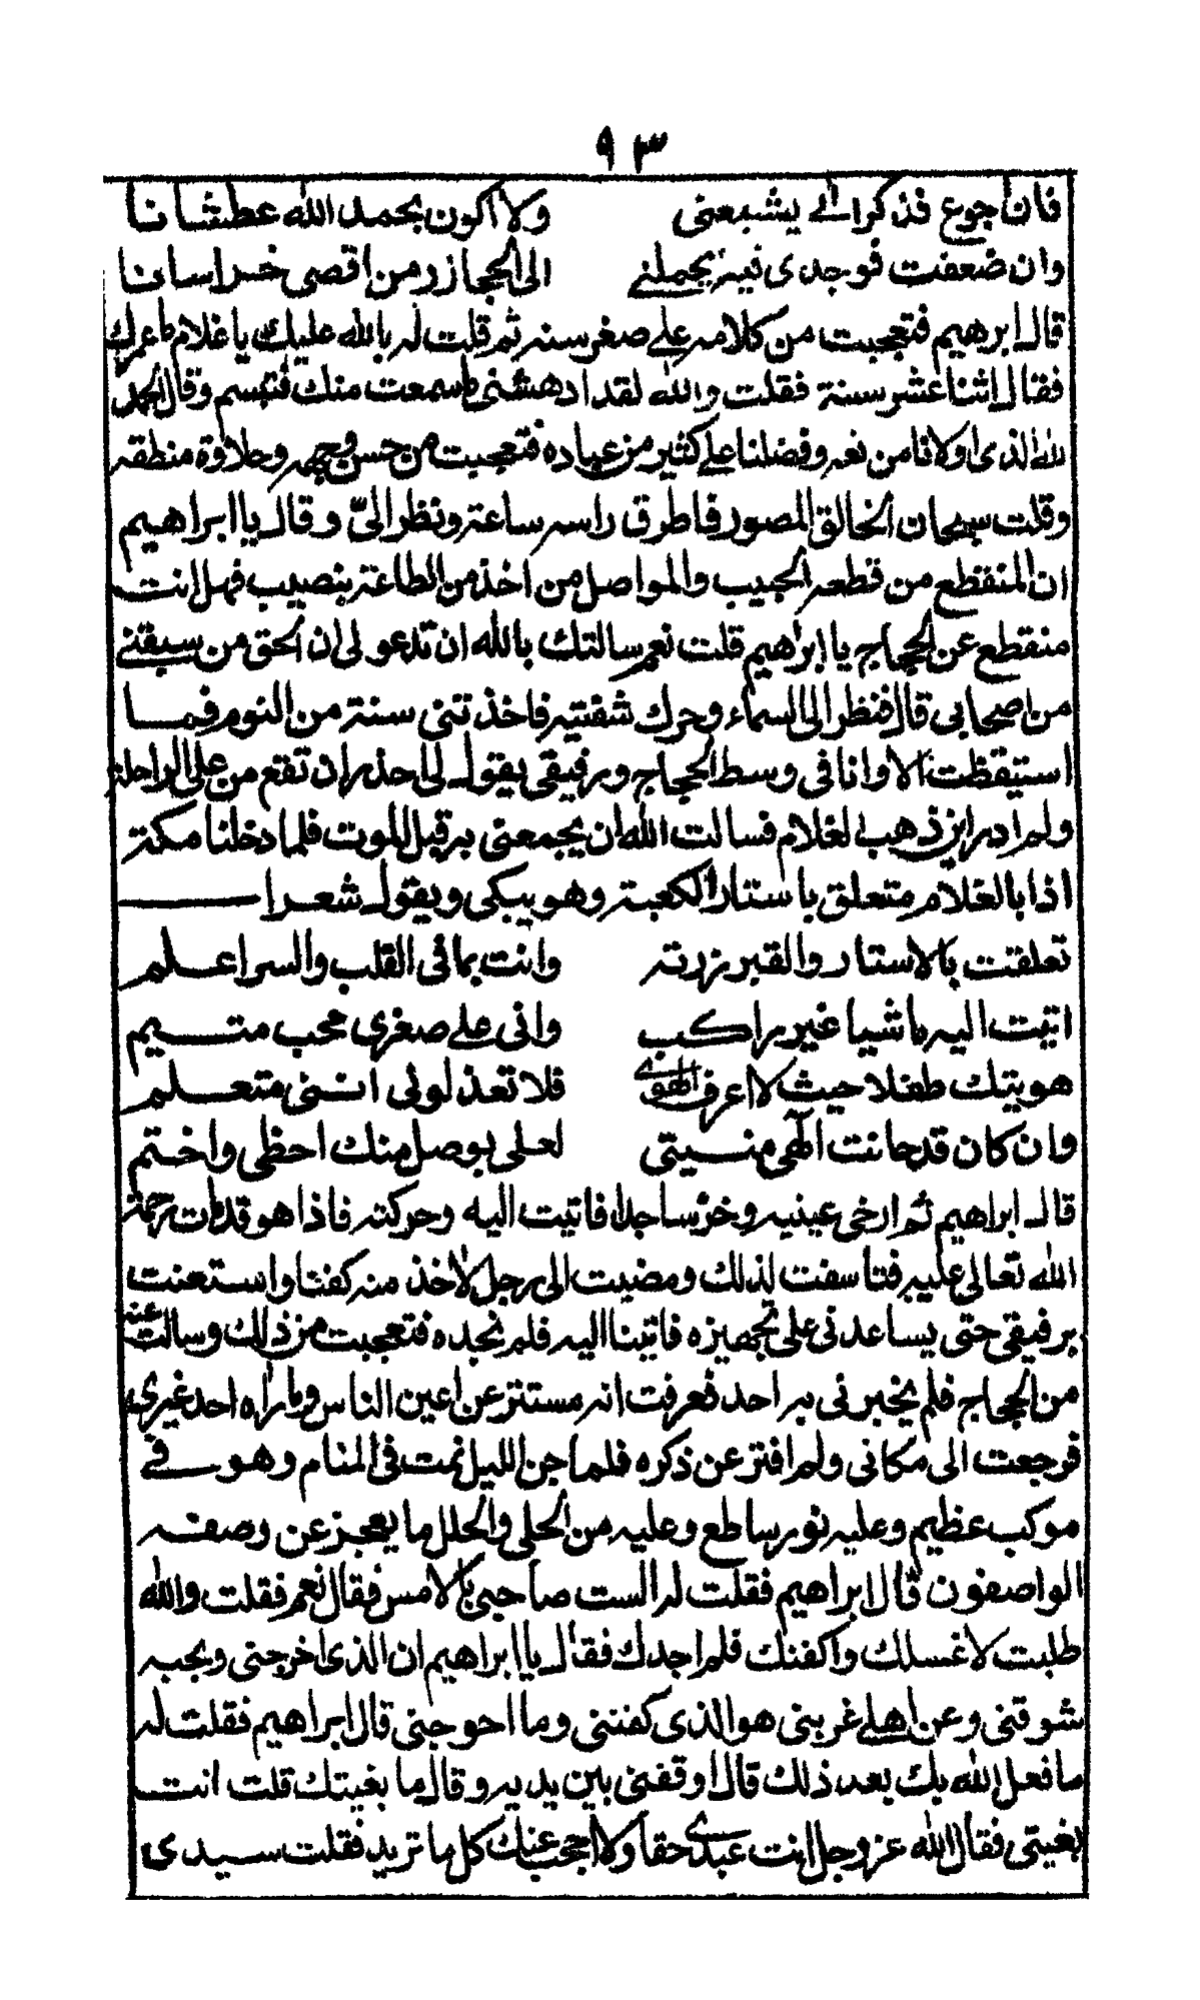 ٩٣
فان اجوع فذكر الله يشبعني ولا اكون بحمد الله عطشانا
وان ضعفت فوجدي فيه يحملني الى الحجاز ومن اقصى خراسانا
قال ابرهيم فتعجبت من كلامه على صغر سنه ثم قلت له بالله عليك يا غلام ما عمرك
فقال اثنا عشر سنة فقلت والله لقد ادهشنى ما سمعت منك فتبسم وقال الحمد
لله الذى اولانا من نعمه وفضلنا على كثير من عباده فتعجبت من حسن وجهه وحلاوة منطقه
وقلت سبحان الخالق المصور فاطرق راسه ساعة ونظر الىّ وقال يا ابراهيم
ان المنقطع من قطعه الحبيب والمواصل من اخذ من الطاعة بنصيب فهل انت
منقطع عن الحجاج يا ابراهيم قلت نعم سالتك بالله ان تدعو لى ان الحق من سبقنى
من اصحابى قال فنظر الى السماء وحرك شفتيه فاخذتنى سنة من النوم فما
استيقظت الا وانا فى وسط الحجاج ورفيقى يقول لى احذر ان تقع من على الراحلة
ولم ادر اين ذهب الغلام فسالت الله ان يجمعنى به قبل الموت فلما دخلنا مكة
اذا بالغلام متعلق باستار الكعبة وهو يبكى ويقول شعرا
تعلقت بالاستار والقبر زرته وانت بما فى القلب والسر اعلم
اتيت اليه ماشيا غير راكب وانى على صغرى محب متيم
هويتك طفلا حيث لا اعرف الهوى فلا تعذلونى اننى متعلم
وان كان قد حانت الهى منيتى لعلى بوصل منك احظى واختم
قال ابراهيم ثم ارخى عينيه وخر ساجدا فاتيت اليه وحركته فاذا هو قد مات رحمة
الله تعالى عليه فتاسفت لذلك ومضيت الى رجل لاخذ منه كفنا واستعنت
برفيقى حتى يساعدنى على تجهيزه فاتينا اليه فلم نجده فتعجبت من ذلك وسالت عنه
من الحجاج فلم يخبرنى به احد فعرفت انه مستتر عن اعين الناس وما راه احد غيرى
فرجعت الى مكانى ولم افتر عن ذكره فلما جن الليل نمت فى المنام وهو فى
موكب عظيم وعليه نور ساطع وعليه من الحلى والحلل ما يعجز عن وصفه
الواصفون قال ابراهيم فقلت له الست صاحبى بالامس فقال نعم فقلت والله
طلبت لاغسلك واكفنك فلم اجدك فقال يا ابراهيم ان الذى اخرجنى وبحبه
شوقنى وعن اهلى غربنى هو الذى كفننى وما احوجنى قال ابراهيم فقلت له
ما فعل الله بك بعد ذلك قال اوقفنى بين يديه وقال ما بغيتك قلت انت
بغيتى فقال الله عز وجل انت عبدى حقا ولا احجب عنك كل ما تريد فقلت سيدى